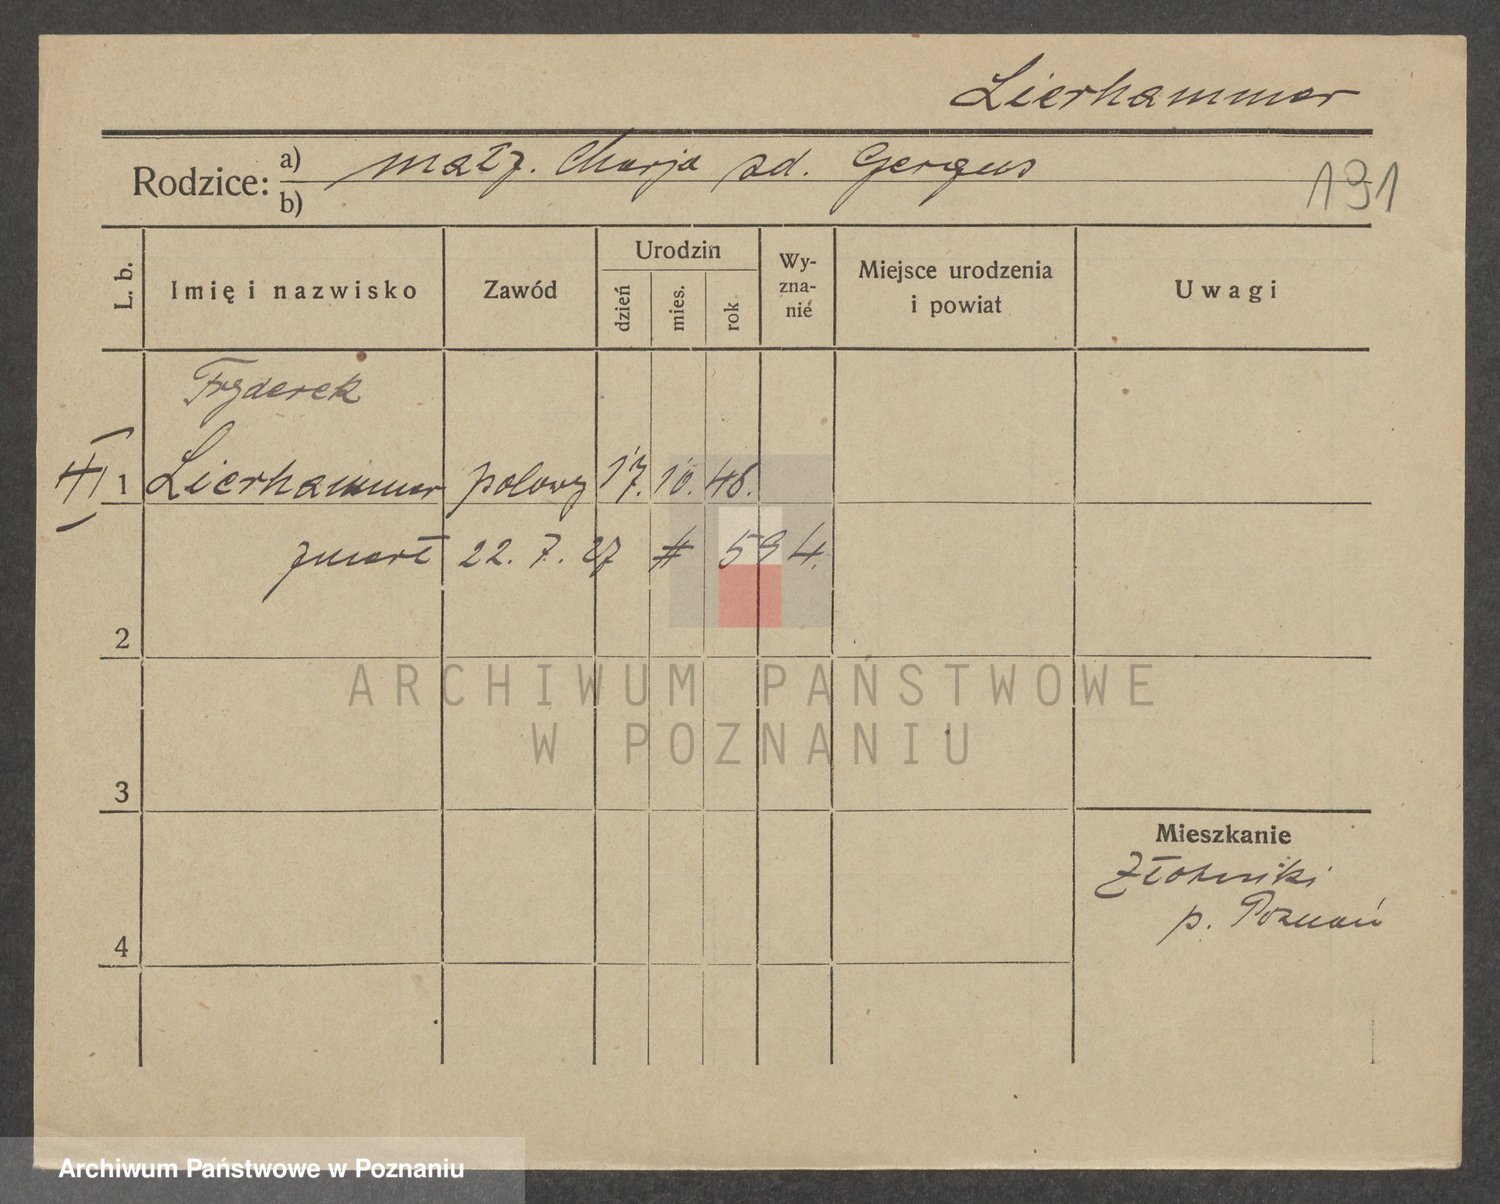 Lierhammer
Rodzice: a) małż. Marja sd. Gergus
b)
191
L. b.
Imię i nazwisko
Zawód
Urodzin
dzień
mies.
rok
Wy-
zna-
nie
Miejsce urodzenia
i powiat
Uwagi
Fryderek
1 Lierhammer polowy 17. 10. 48.
zmarł 22. 7. 27 # 594.
2
3
4
Mieszkanie
Złotniki
p. Poznań
ARCHIWUM PAŃSTWOWE
W POZNANIU
Archiwum Państwowe w Poznaniu